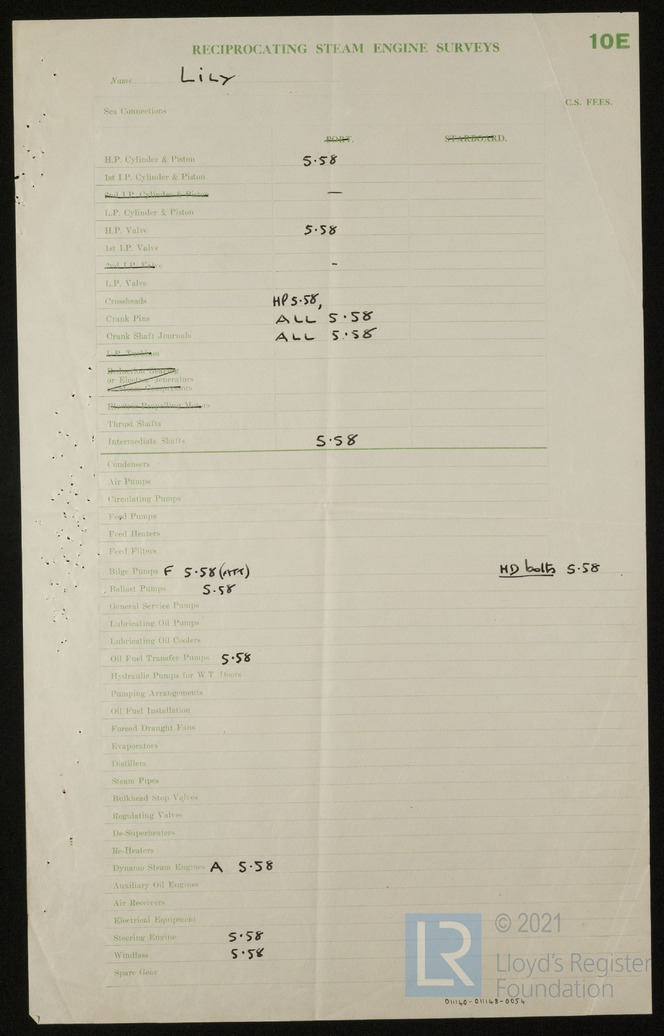 10E
RECIPROCATING STEAM ENGINE SURVEYS
Name LiLY
Sea Connections
C.S. FEES.
PORT. STARBOARD.
H.P. Cylinder & Piston 5.58
1st I.P. Cylinder & Piston
2nd I.P. Cylinder & Piston —
L.P. Cylinder & Piston
H.P. Valve 5.58
1st I.P. Valve
2nd I.P. Valve -
L.P. Valve
Crossheads HP 5.58,
Crank Pins ALL 5.58
Crank Shaft Journals ALL 5.58
L.P. Turbine
Reduction Gearing
or Electric Generators
Electric Propelling Motors
Thrust Shafts
Intermediate Shafts 5.58
Condensers
Air Pumps
Circulating Pumps
Feed Pumps
Feed Heaters
Feed Filters
Bilge Pumps F 5.58 (AFT) HD bolts 5.58
Ballast Pumps 5.58
General Service Pumps
Lubricating Oil Pumps
Lubricating Oil Coolers
Oil Fuel Transfer Pumps 5.58
Hydraulic Pumps for W.T. Doors
Pumping Arrangements
Oil Fuel Installation
Forced Draught Fans
Evaporators
Distillers
Steam Pipes
Bulkhead Stop Valves
Regulating Valves
De-Superheaters
Re-Heaters
Dynamo Steam Engines A 5.58
Auxiliary Oil Engines
Air Receivers
Electrical Equipment
Steering Engine 5.58
Windlass 5.58
Spare Gear
LR
© 2021
Lloyd's Register
Foundation
01140-01148-0054